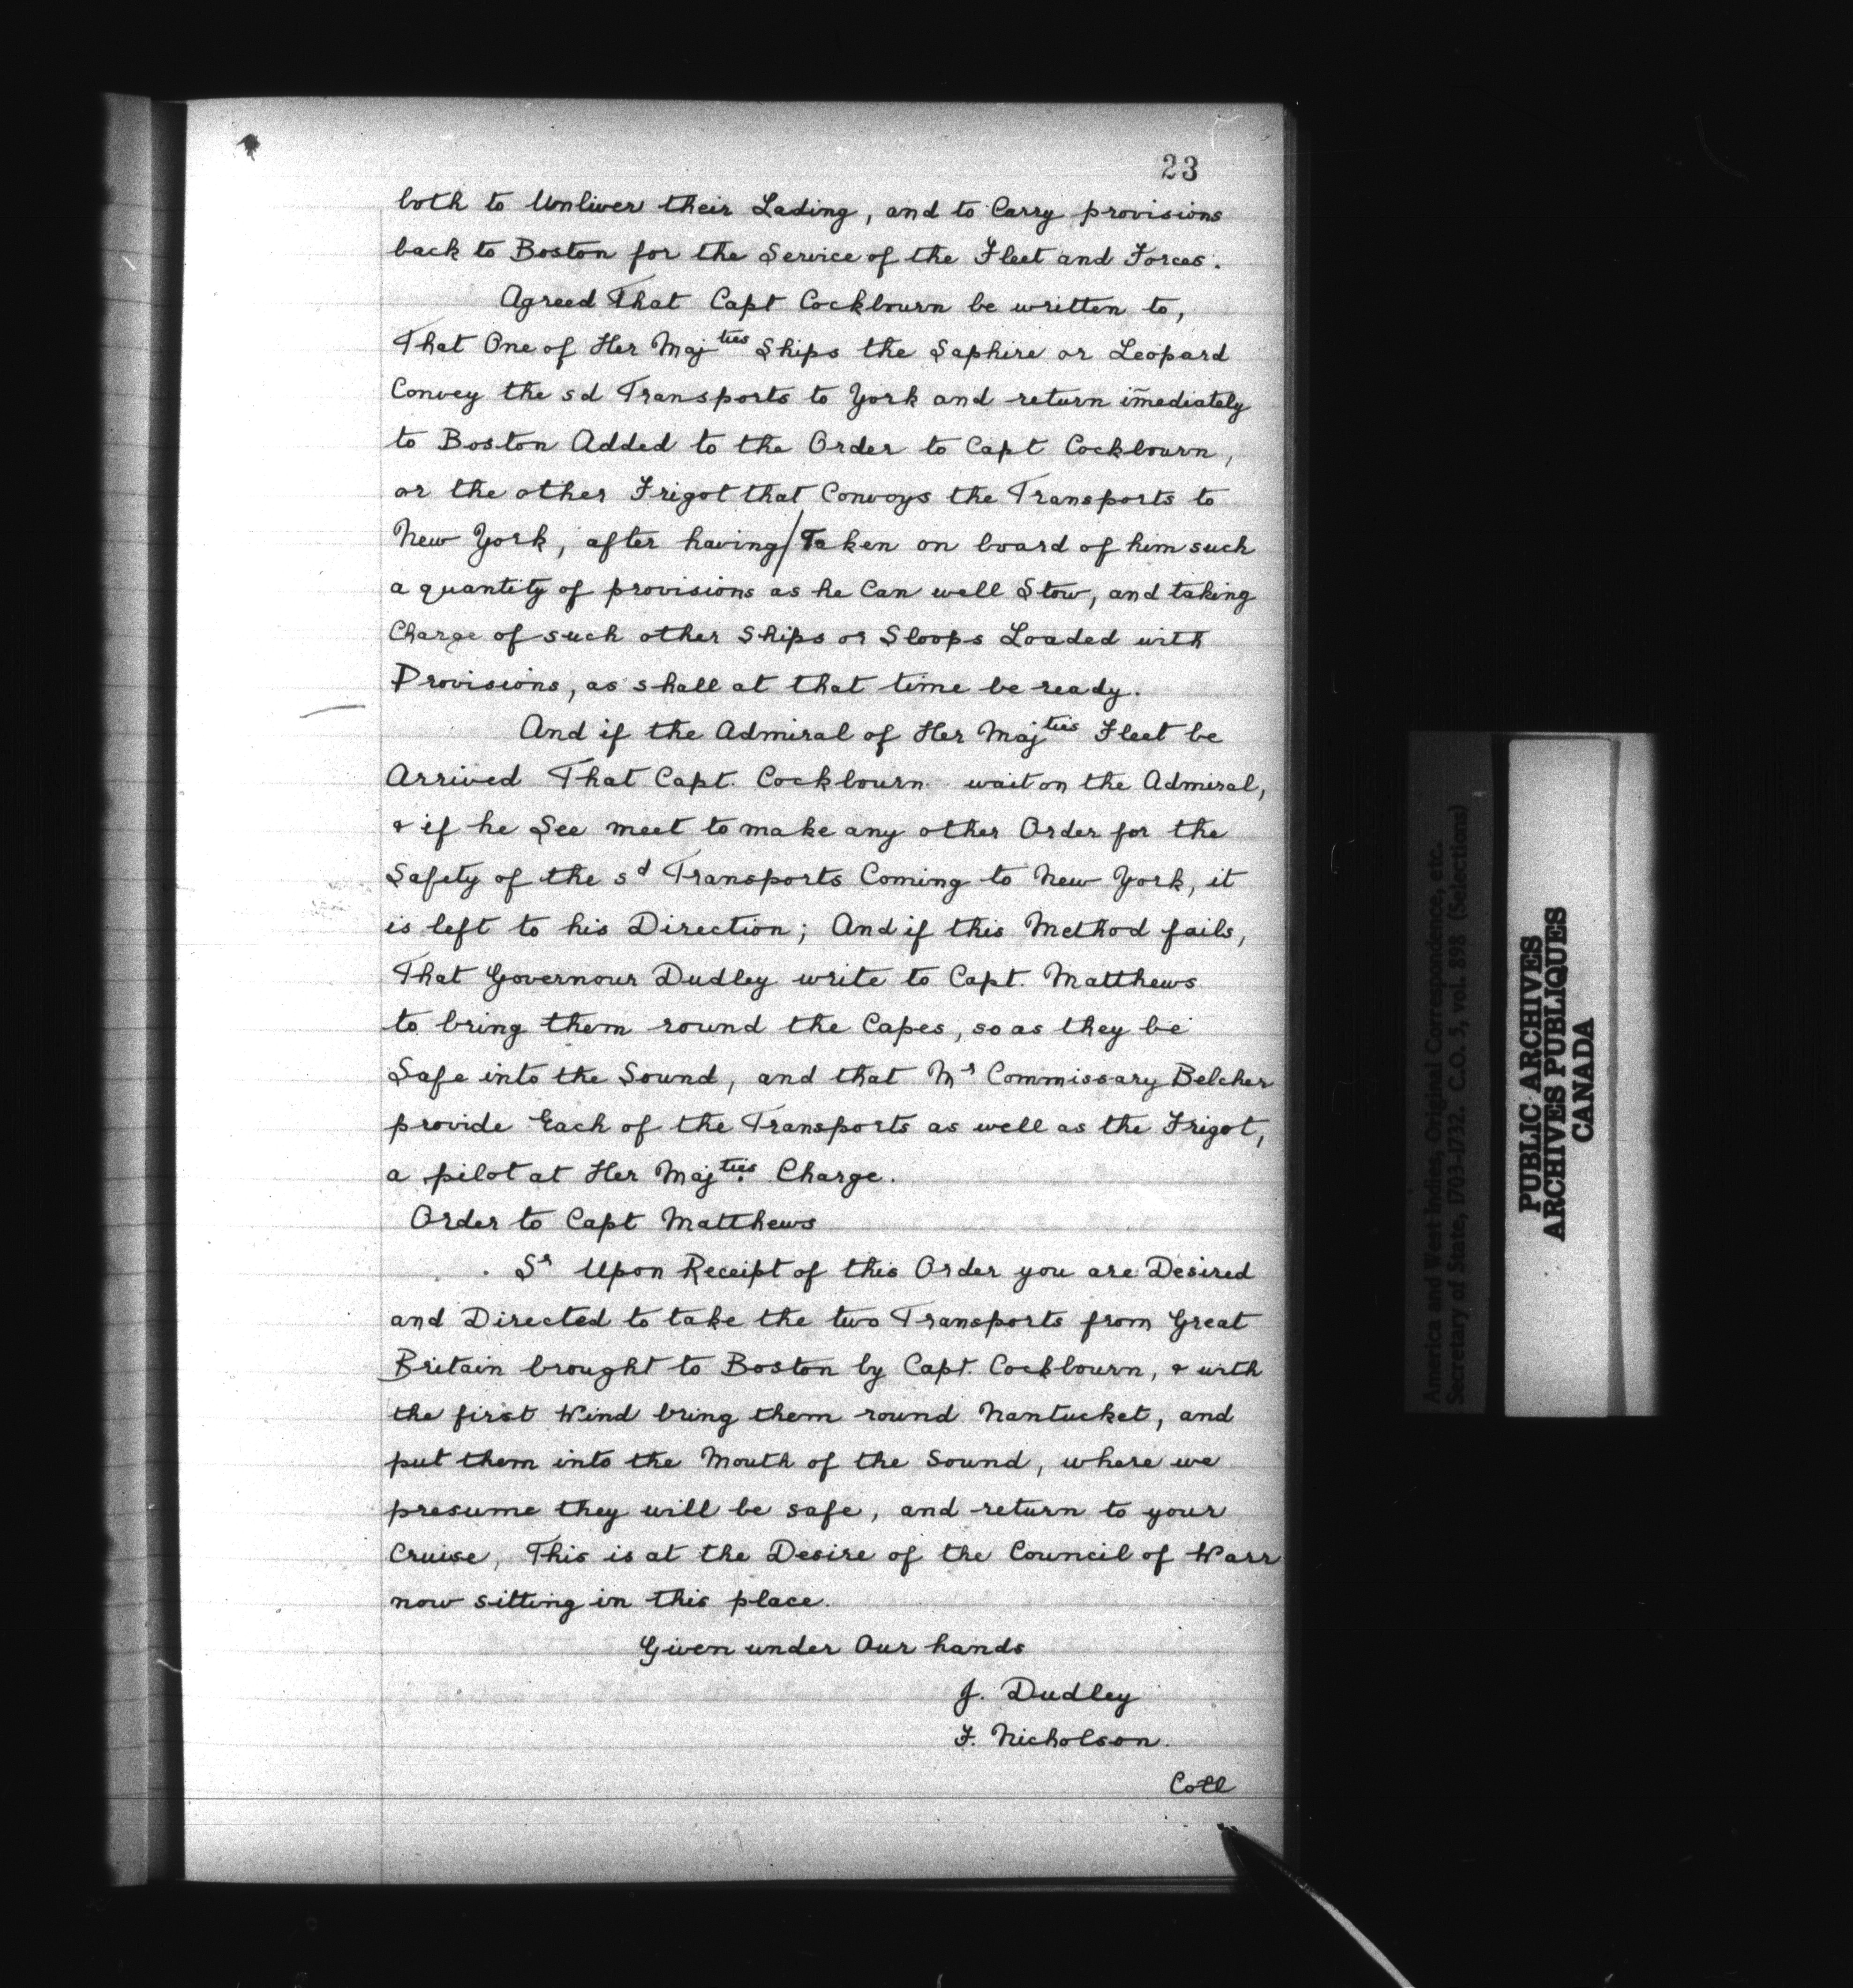 23
both to Unliver their Lading, and to Carry provisions
back to Boston for the Service of the Fleet and Forces.
Agreed That Capt Cockbourn be written to,
That One of Her Majties Ships the Saphire or Leopard
Convey the sd Transports to York and return im̄ediately
to Boston Added to the Order to Capt Cockbourn,
or the other Frigot that Convoys the Transports to
New York, after having/Taken on board of him such
a quantity of provisions as he Can well Stow, and taking
Charge of such other Ships or Sloops Loaded with
Provisions, as shall at that time be ready.
And if the Admiral of Her Majties Fleet be
Arrived That Capt. Cockbourn wait on the Admiral,
& if he See meet to make any other Order for the
Safety of the sd Transports Coming to New York, it
is left to his Direction; And if this Method fails,
That Governour Dudley write to Capt. Matthews
to bring them round the Capes, so as they be
Safe into the Sound, and that Mr Commissary Belcher
provide Each of the Transports as well as the Frigot,
a pilot at Her Majties Charge.
Order to Capt Matthews
Sr Upon Receipt of this Order you are Desired
and Directed to take the two Transports from Great
Britain brought to Boston by Capt. Cockbourn, & with
the first Wind bring them round Nantucket, and
put them into the Mouth of the Sound, where we
presume they will be safe, and return to your
Cruise, This is at the Desire of the Council of Warr
now sitting in this place.
Given under Our hands
J. Dudley
F. Nicholson.
Coll
America and West Indies, Original Correspondence, etc.
Secretary of State, 1703-1732. C.O. 5, vol. 898 (Selections)
PUBLIC ARCHIVES
ARCHIVES PUBLIQUES
CANADA